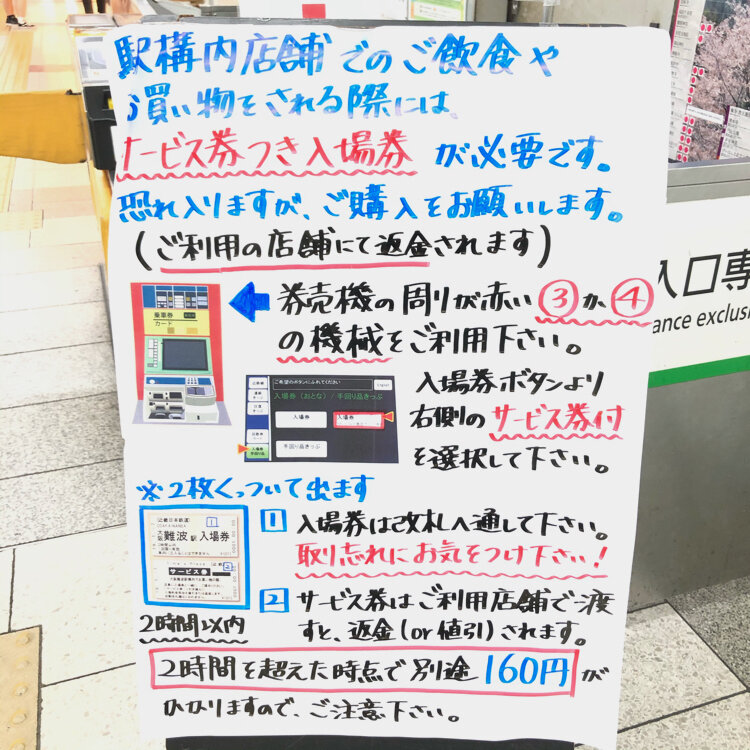 駅構内店舗でのご飲食や
お買い物をされる際には、
サービス券つき入場券 が必要です。
恐れ入りますが、ご購入をお願いします。
(ご利用の店舗にて返金されます)
券売機の周りが赤い③か④
の機械をご利用下さい。
乗車券
カード
ご希望のボタンにふれてください
入場券(おとな)/手回り品きっぷ
入場券
入場券
手回り品きっぷ
入場券ボタンより
右側のサービス券付
を選択して下さい。
※2枚くっついて出ます
1 入場券は改札へ通して下さい。
取り忘れにお気をつけ下さい!
近畿日本鉄道
大阪難波駅入場券
サービス券
2 サービス券はご利用店舗で渡
すと、返金(or値引)されます。
2時間以内
2時間を超えた時点で別途160円が
かかりますので、ご注意下さい。
入口専
ance exclus